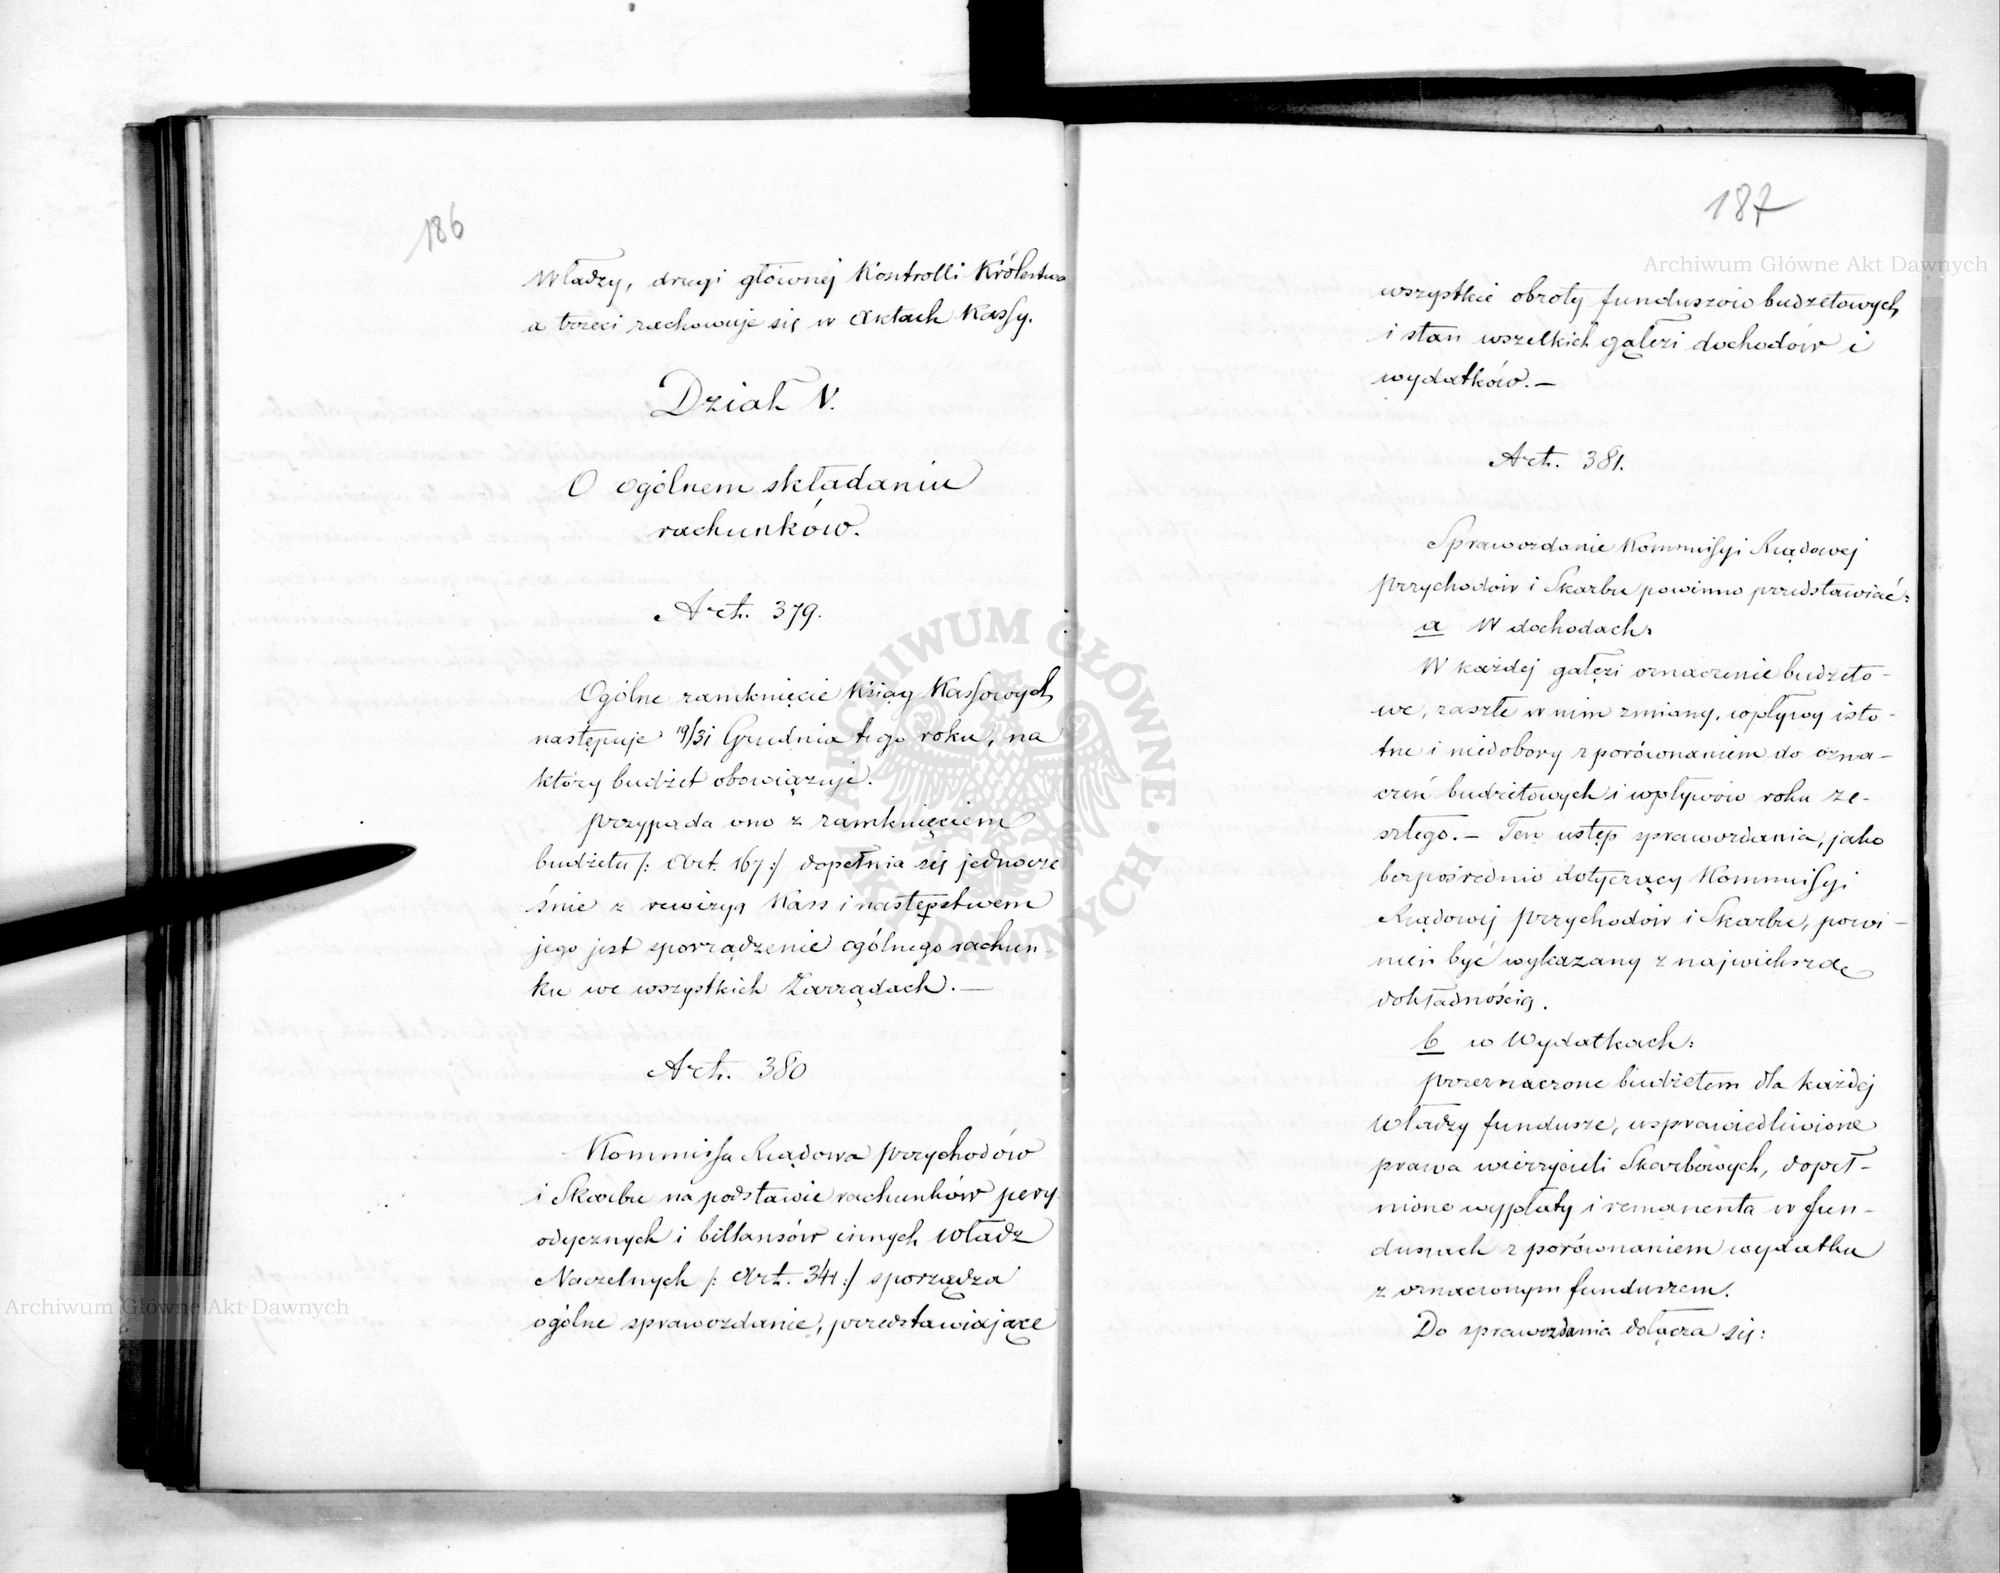 186
Władzy, drugi głównej Kontrolli Królestwa
a trzeci zachowuje się w Aktach Kassy.
Dział V.
O ogólnem składaniu
rachunków.
Art. 379.
Ogólne zamknięcie Ksiąg Kassowych
następuje 19/31 Grudnia tego roku, na
który budżet obowiązuje.
przypada ono z zamknięciem
budżetu /: Art. 167 :/ dopełnia się jednocze
śnie z rewizyą Kass i następstwem
jego jest sporządzenie ogólnego rachun-
ku we wszystkich Zarządach. —
Art. 380
Kommissa Rządowa przychodów
i Skarbu na podstawie rachunków pery
odycznych i billansów innych Władz
Naczelnych /: Art. 341 :/ sporządza
ogólne sprawozdanie, przedstawiające
187
wszystkie obroty funduszów budżetowych
i stan wszelkich gałęzi dochodów i
wydatków. —
Art. 381.
Sprawozdanie Kommissyi Rządowej
przychodów i Skarbu powinno przedstawiać:
a W dochodach:
W każdej gałęzi oznaczenie budżeto-
we, zaszłe w nim zmiany, wpływy isto-
tne i niedobory z porównaniem do ozna-
czeń budżetowych i wpływów roku ze-
szłego. — Ten ustęp sprawozdania, jako
bezpośrednio dotyczący Kommissyi
Rządowej przychodów i Skarbu, powi-
nien być wykazany z największą
dokładnością.
b w Wydatkach:
przeznaczone budżetem dla każdej
Władzy fundusze, usprawiedliwione
prawa wierzycieli Skarbowych, dopeł-
nione wypłaty i remanenta w fun-
duszach z porównaniem wydatku
z oznaczonym funduszem.
Do sprawozdania dołącza się:
Archiwum Główne Akt Dawnych
Archiwum Główne Akt Dawnych
ARCHIWUM GŁÓWNE AKT DAWNYCH